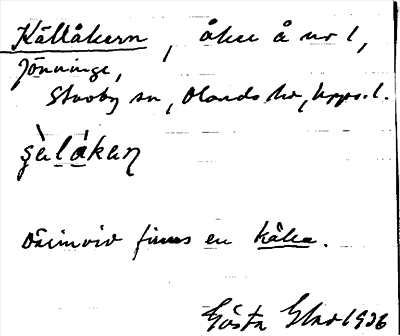 Källåkern, åker å nr 1,
Jönninge,
Skuby sn, Olands hd, Upps. l.
Därinvid finns en källa.
Gösta Elw 1926